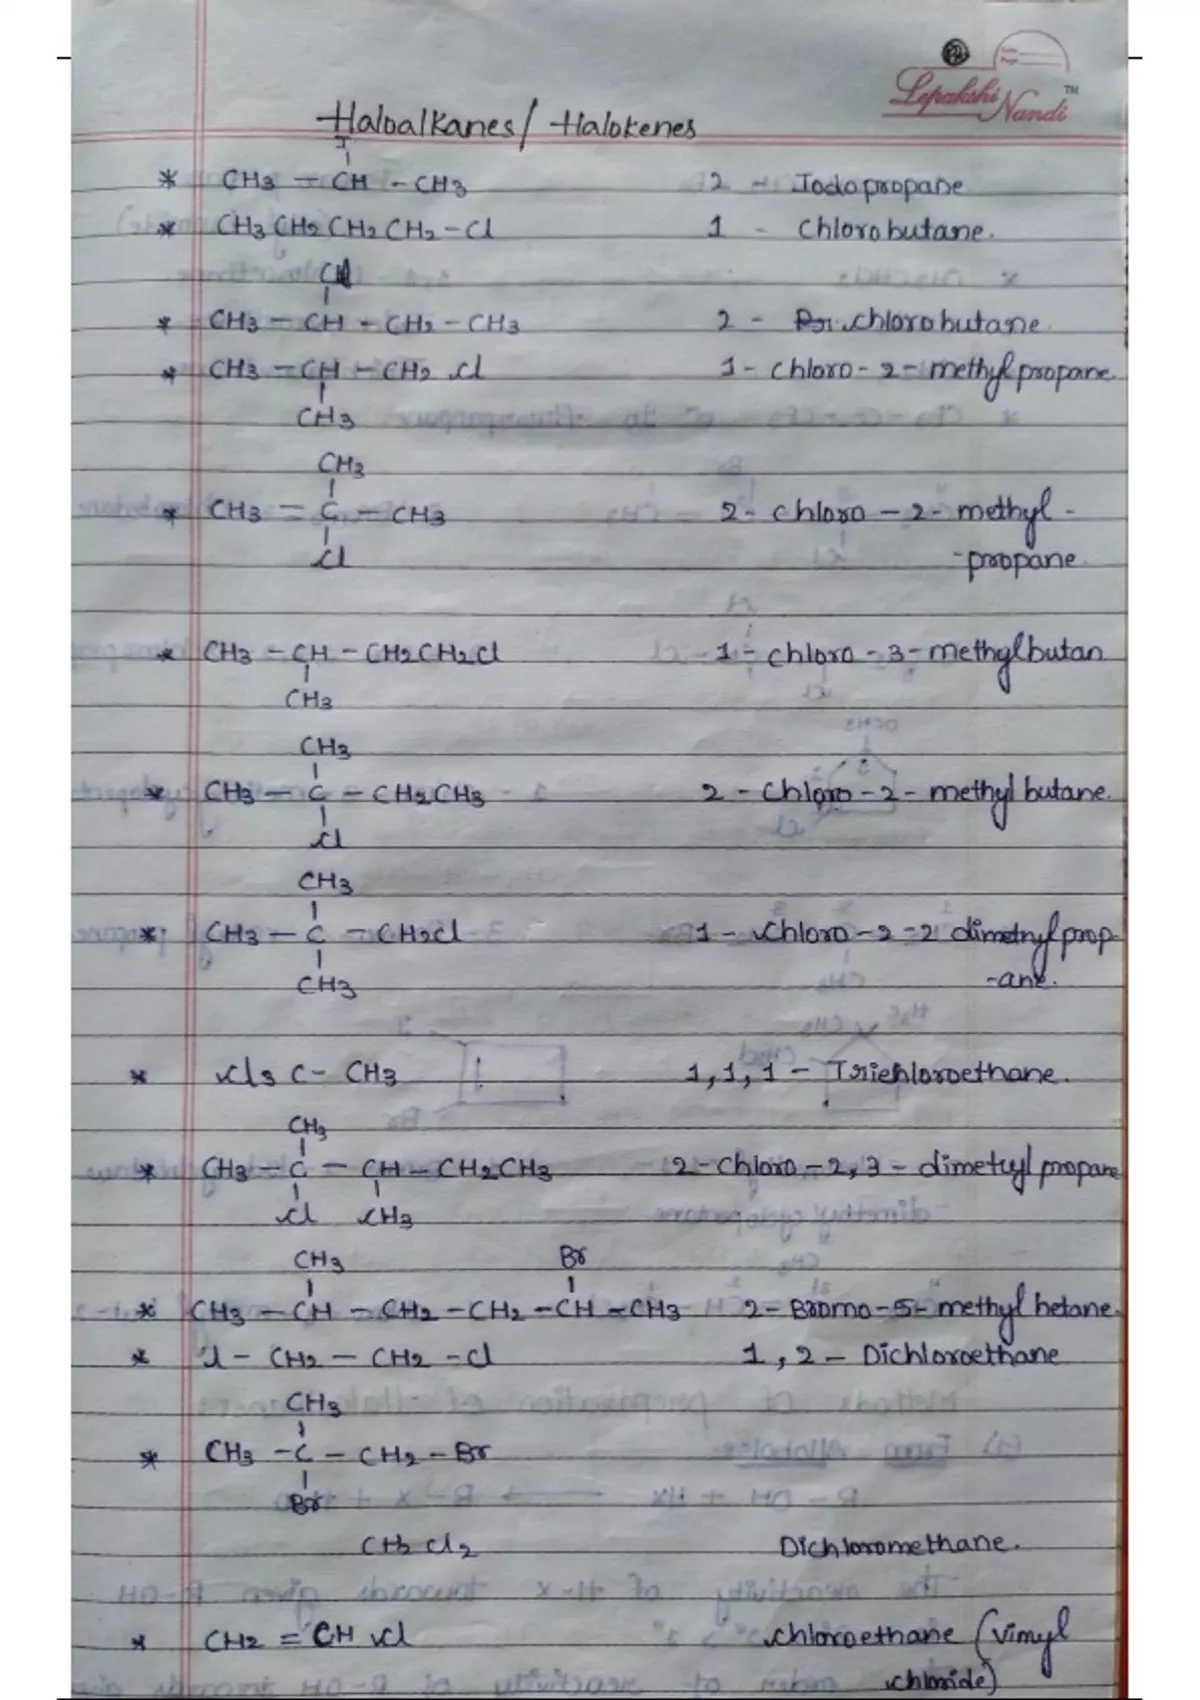 Lepakshi Nandi TM
Haloalkanes / Halokenes
I
* CH3 - CH - CH3 2 - Iodopropane
* CH3 CH2 CH2 CH2 - Cl 1 - Chlorobutane.
* CH3 - CH - CH2 - CH3 2 - chlorobutane
* CH3 - CH - CH2 Cl 1 - chloro - 2 - methylpropane.
CH3
CH3
* CH3 - C - CH3 2 - chloro - 2 - methyl -
Cl -propane.
* CH3 - CH - CH2CH2Cl 1 - chloro - 3 - methylbutan
CH3
CH3
* CH3 - C - CH2CH3 2 - chloro - 2 - methyl butane.
Cl
CH3
* CH3 - C - CH2Cl 1 - chloro - 2 - 2 dimethyl prop-
CH3 -ane.
* Cl3 C - CH3 1,1,1 - Trichloroethane.
CH3
* CH3 - C - CH - CH2CH3 2 - chloro - 2,3 - dimetyl propane
Cl CH3
CH3 Br
* CH3 - CH - CH2 - CH2 - CH - CH3 2 - Bromo - 5 - methyl hetane.
* Cl - CH2 - CH2 - Cl 1,2 - Dichloroethane
CH3
* CH3 - C - CH2 - Br
Br
CH2 Cl2 Dichloromethane.
* CH2 = CH Cl chloroethane (vimyl
chloride)